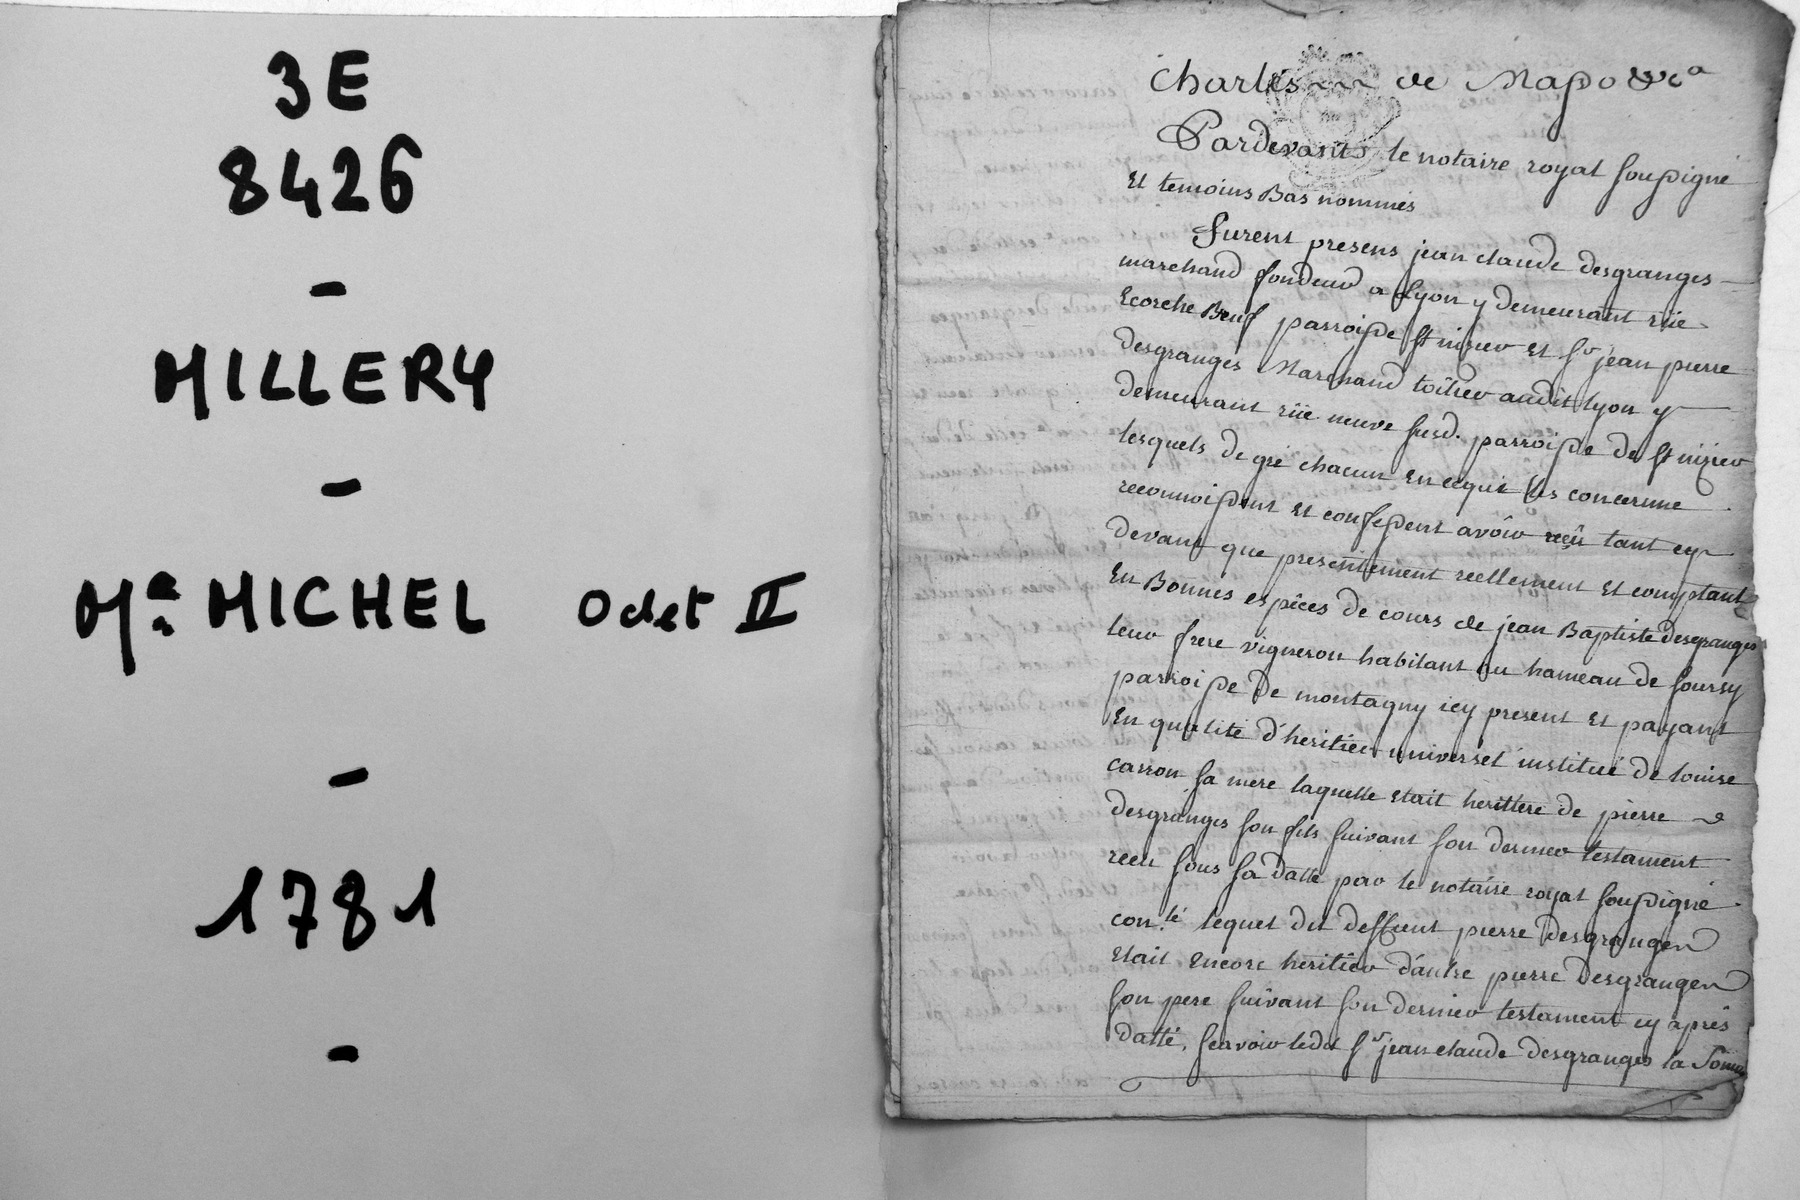 3E
8426
-
MILLERY
-
Me MICHEL Odet II
-
1781
-
Charles de Mapo &ca
Pardevant le notaire royal soussigné
Et temoins Bas nommés
Furent presens jean claude desgranges
marchand fondeur a Lyon y demeurant rüe
Ecorche Bœuf parroisse st nizier Et sr jean pierre
desgranges Marchand toilier audit Lyon y
demeurant rüe neuve susd. parroisse de st nizier
lesquels de gré chacun En cequi les concerne
reconnoissent Et confessent avoir reçu tant cy
devant que presentement reellement Et comptant
En Bonnes espèces de cours de jean Baptiste desgranges
leur frere vigneron habitant au hameau de soursy
parroisse de montagny icy present Et payant
En qualité d'heritier universel institué de louise
carron sa mere laquelle Etait heritiere de pierre
desgranges son fils suivant son dernier testament
recu sous sa datte par le notaire royal soussigné
con.lé lequel dit deffunt pierre desgranges
Etait Encore heritier d'autre pierre desgranges
son pere suivant son dernier testament cy après
datté, scavoir ledit sr jean claude desgranges la somme